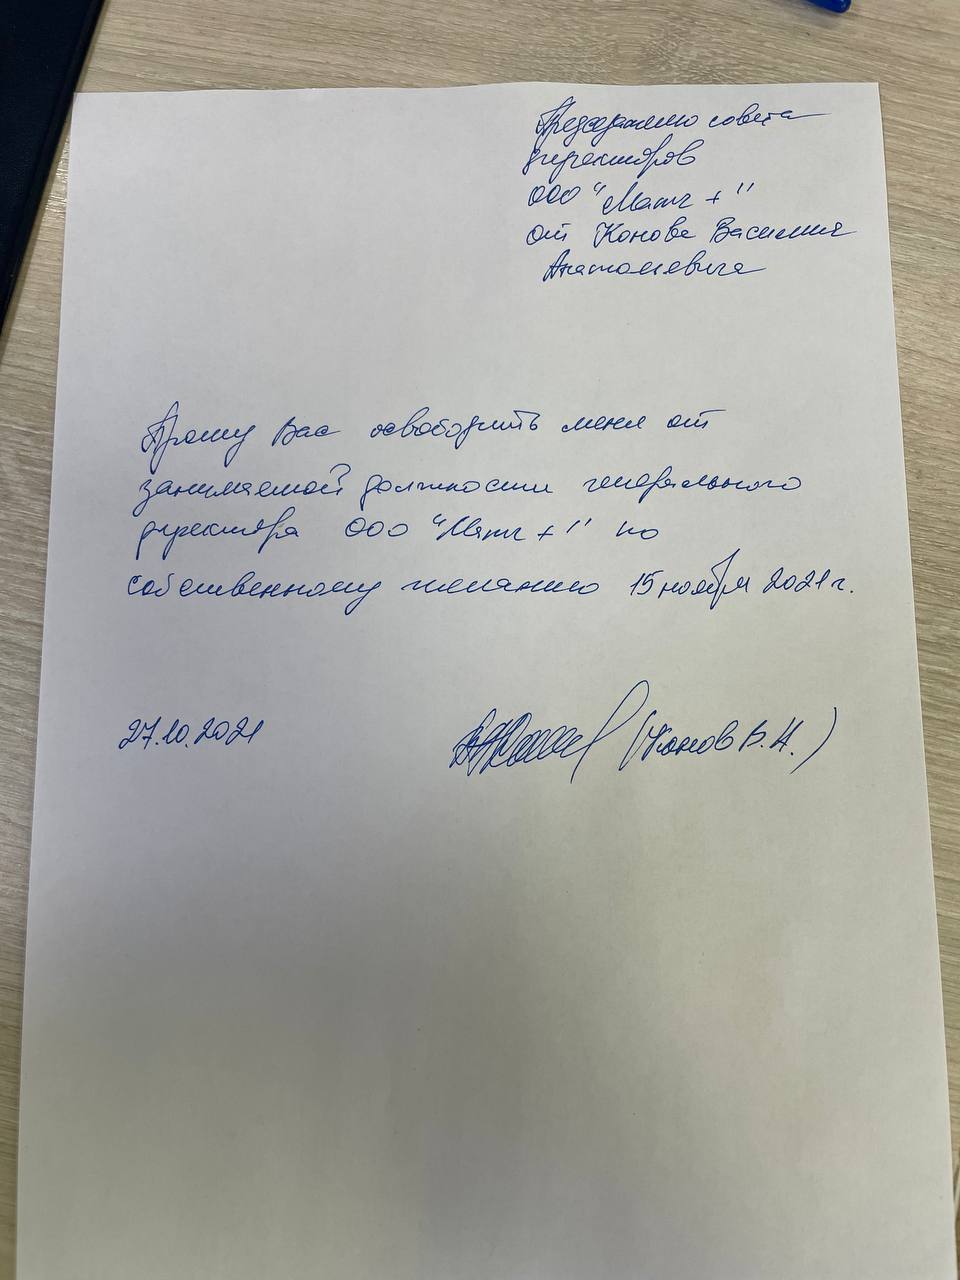 Председателю совета
директоров
ООО "Матч +"
от Конова Василия
Анатольевича
Прошу Вас освободить меня от
занимаемой должности генерального
директора ООО "Матч +" по
собственному желанию 15 ноября 2021 г.
27.10.2021 (Конов В. А.)